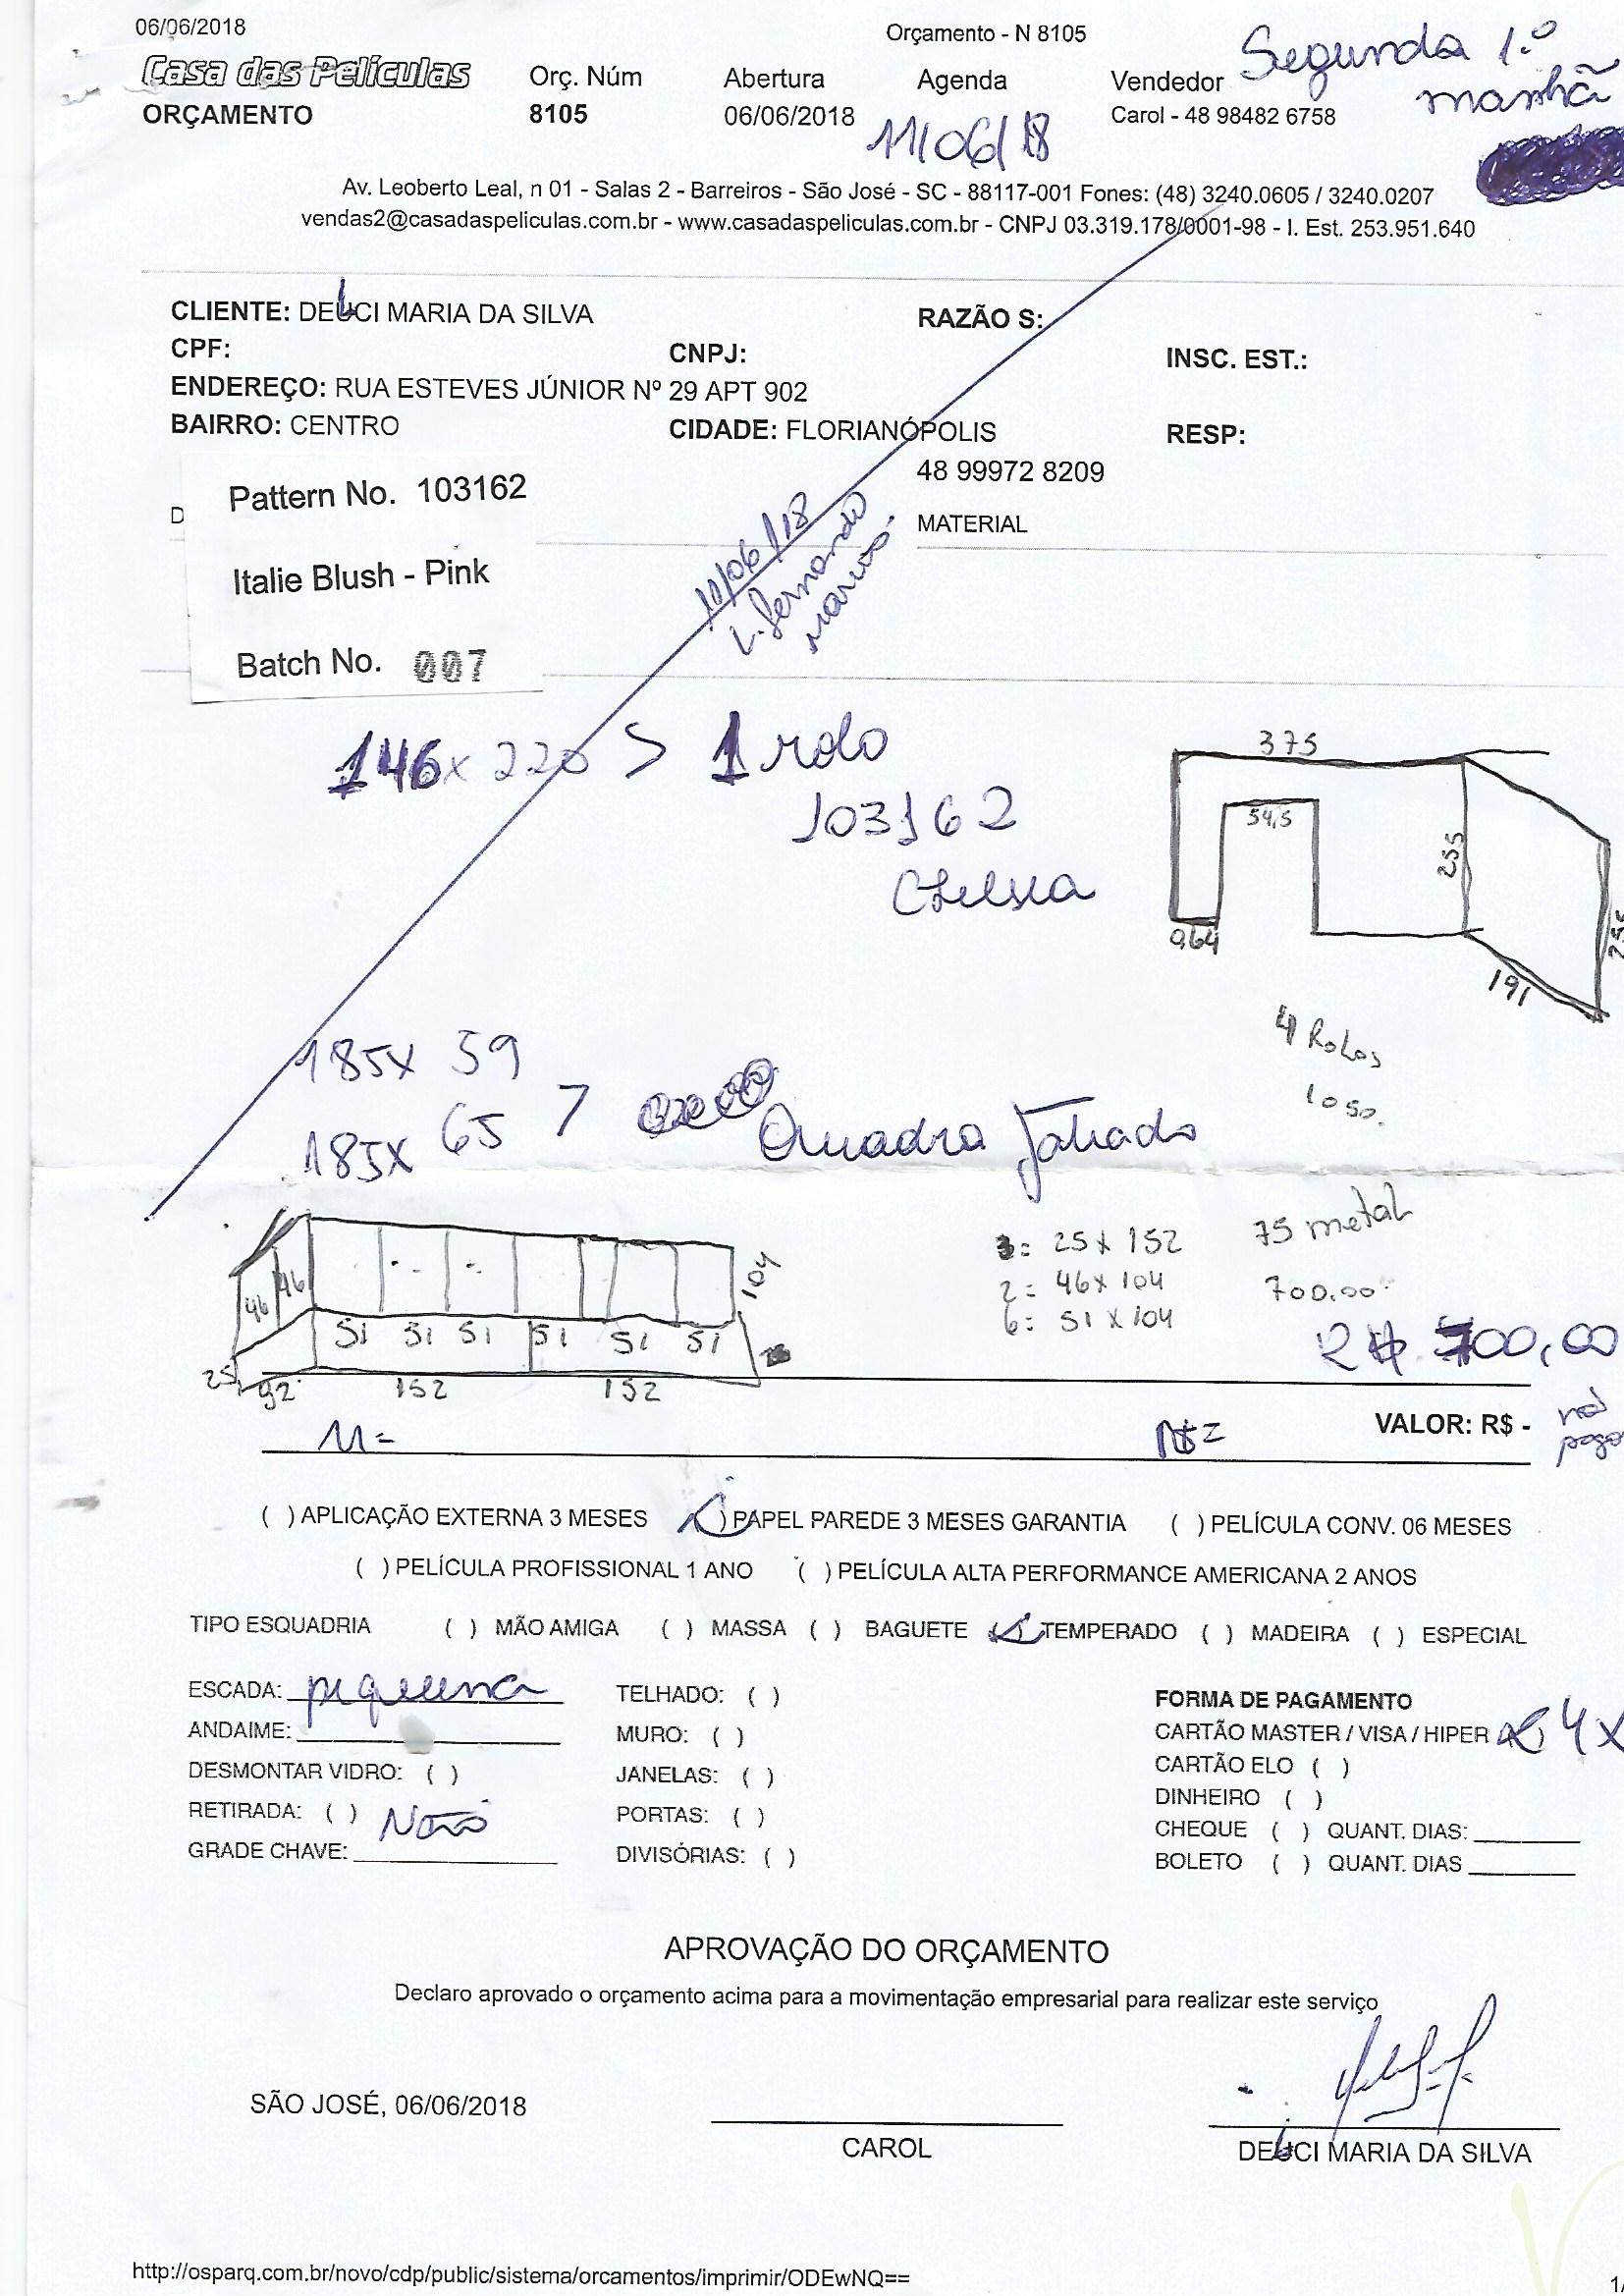 06/06/2018 Orçamento - N 8105
Segunda 1.º
manhã
Casa das Películas Orç. Núm Abertura Agenda Vendedor
ORÇAMENTO 8105 06/06/2018 11/06/18 Carol - 48 98482 6758
Av. Leoberto Leal, n 01 - Salas 2 - Barreiros - São José - SC - 88117-001 Fones: (48) 3240.0605 / 3240.0207
vendas2@casadaspeliculas.com.br - www.casadaspeliculas.com.br - CNPJ 03.319.178/0001-98 - I. Est. 253.951.640
CLIENTE: DELCI MARIA DA SILVA RAZÃO S:
CPF: CNPJ: INSC. EST.:
ENDEREÇO: RUA ESTEVES JÚNIOR Nº 29 APT 902
BAIRRO: CENTRO CIDADE: FLORIANÓPOLIS RESP:
48 99972 8209
D MATERIAL
Pattern No. 103162
Italie Blush - Pink
Batch No. 007
11/06/18
L. Fernando
Marcos
146 x 220 > 1 rolo
103162
Chelsea
375
54,5
255
964
191
4 Rolos
1050.
185x 59
185x 65 >
Quadro Telhado
46 46 104
51 51 51 51 51 51
25 92 152 152
3= 25 x 152
2= 46 x 104
6= 51 x 104
75 metal
700,00
R$ 700,00
M=
VALOR: R$ -
( ) APLICAÇÃO EXTERNA 3 MESES ( ) PAPEL PAREDE 3 MESES GARANTIA ( ) PELÍCULA CONV. 06 MESES
( ) PELÍCULA PROFISSIONAL 1 ANO ( ) PELÍCULA ALTA PERFORMANCE AMERICANA 2 ANOS
TIPO ESQUADRIA ( ) MÃO AMIGA ( ) MASSA ( ) BAGUETE ( ) TEMPERADO ( ) MADEIRA ( ) ESPECIAL
ESCADA: pequena TELHADO: ( ) FORMA DE PAGAMENTO
ANDAIME: MURO: ( ) CARTÃO MASTER / VISA / HIPER ( ) 4x
DESMONTAR VIDRO: ( ) JANELAS: ( ) CARTÃO ELO ( )
RETIRADA: ( ) Não PORTAS: ( ) DINHEIRO ( )
GRADE CHAVE: DIVISÓRIAS: ( ) CHEQUE ( ) QUANT. DIAS:
BOLETO ( ) QUANT. DIAS
APROVAÇÃO DO ORÇAMENTO
Declaro aprovado o orçamento acima para a movimentação empresarial para realizar este serviço
SÃO JOSÉ, 06/06/2018
CAROL DELCI MARIA DA SILVA
http://osparq.com.br/novo/cdp/public/sistema/orcamentos/imprimir/ODEwNQ==